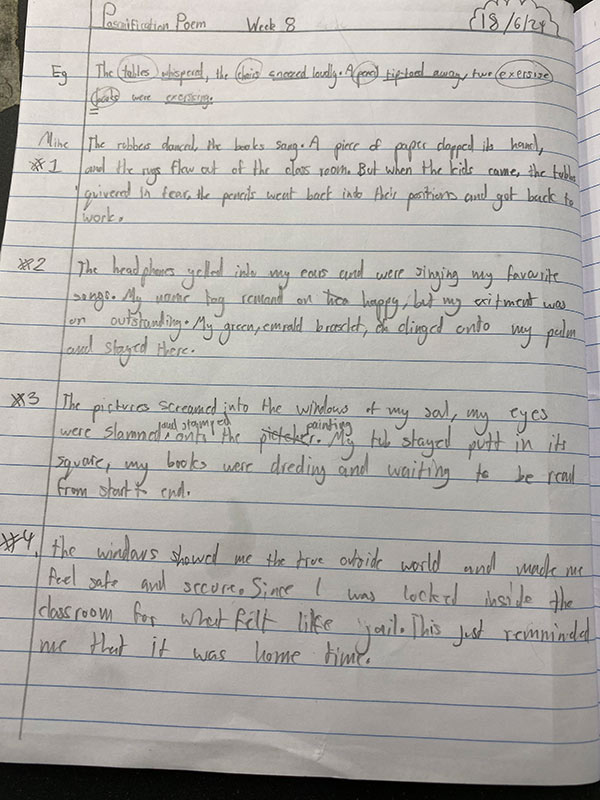 Pasonification Poem Week 8 18/6/24
Eg The tables whisperd, the chairs sneezed loudly. A pencil tip-toed away, two exersise
books were exersing.
Mine The robbers danced, the books sang. A piece of paper clapped its hand,
#1 and the rugs flew out of the class room. But when the kids came, the tables
quivered in fear, the pencils went back into their positions and got back to
work.
#2 The headphones yelled into my ears and were singing my favourite
songs. My name tag remand on happy, but my exitment was
on outstanding. My green, emrald braselet, clinged onto my palm
and stayed there.
#3 The pictures screamed into the windows of my soul, my eyes
were slammed, and stamped onto the picther painting. My tub stayed putt in its
square, my books were dreding and waiting to be read
from start to end.
#4. the windows showed me the true outside world and made me
feel safe and secure. Since I was locked inside the
classroom for what felt like jail. This just remninded
me that it was home time.